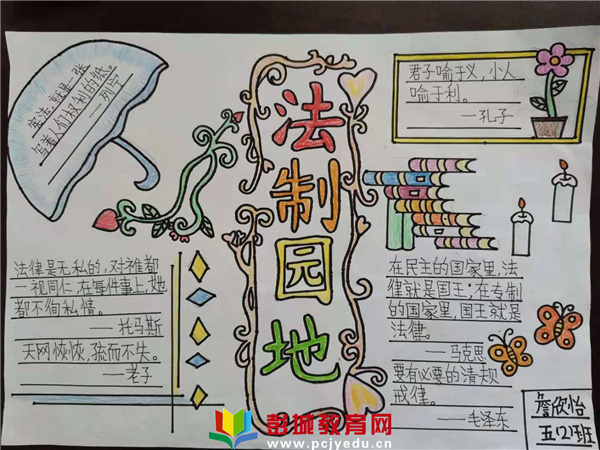 宪法,就是一张
写着人们权利的纸。
——列宁
法制园地
君子喻于义,小人
喻于利。
——孔子
法律是无私的,对谁都
一视同仁,在每件事上,她
都不徇私情。
——托马斯
天网恢恢,疏而不失。
——老子
在民主的国家里,法
律就是国王;在专制
的国家里,国王就是
法律。
——马克思
要有必要的清规
戒律。
——毛泽东
詹欣怡
五(2)班
彭城教育网
www.pcjyedu.cn